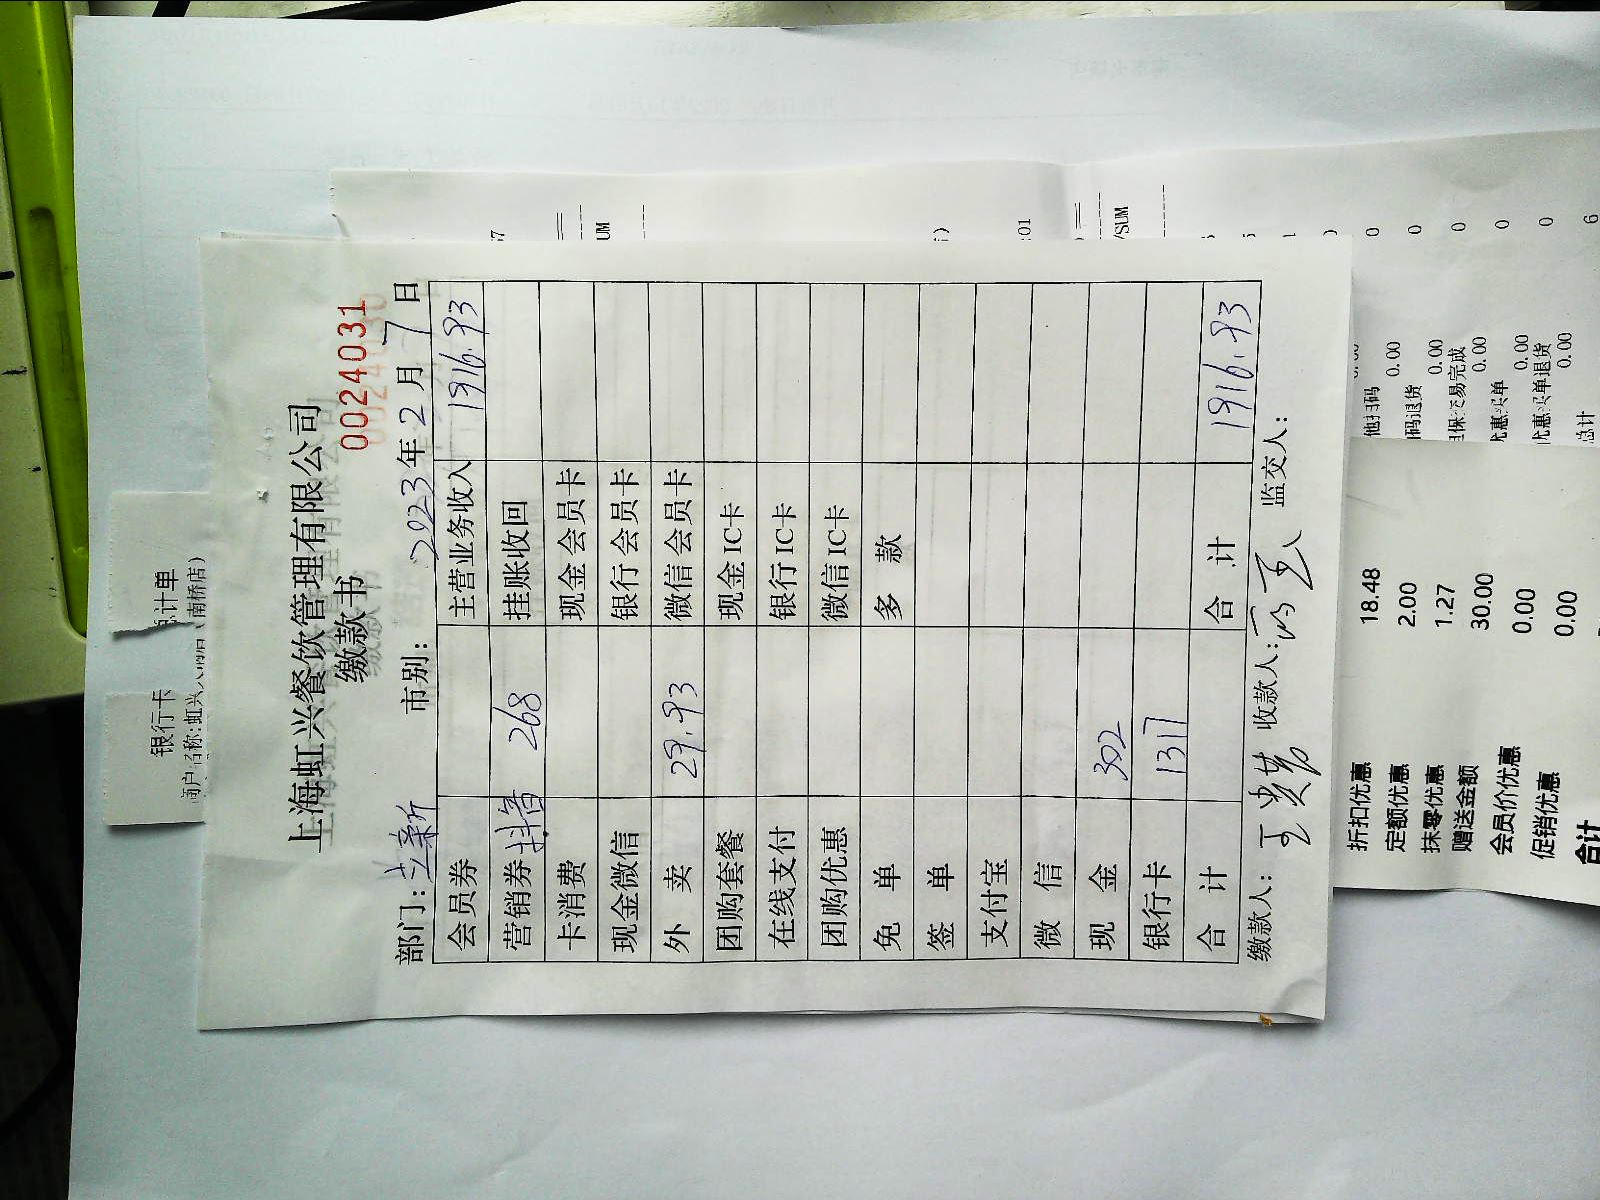 银行卡 总计单
商户名称:虹兴
南桥店)
上海虹兴餐饮管理有限公司
缴款书 0024031
部门: 立新 市别: 2023年2月7日
会员券 主营业务收入 1916.93
营销券 抖音 268 挂账收回
卡消费 现金会员卡
现金微信 银行会员卡
外 卖 29.93 微信会员卡
团购套餐 现金IC卡
在线支付 银行IC卡
团购优惠 微信IC卡
免 单 多 款
签 单
支付宝
微 信
现 金 302
银行卡 1317
合 计 合 计 1916.93
缴款人: 收款人: 监交人:
UM
:01
/SUM
0
0
0
0
0
6
0.00
码退货 0.00
担保交易完成 0.00
优惠买单 0.00
优惠买单退货 0.00
总计
折扣优惠 18.48
定额优惠 2.00
抹零优惠 1.27
赠送金额 30.00
会员价优惠 0.00
促销优惠 0.00
合计